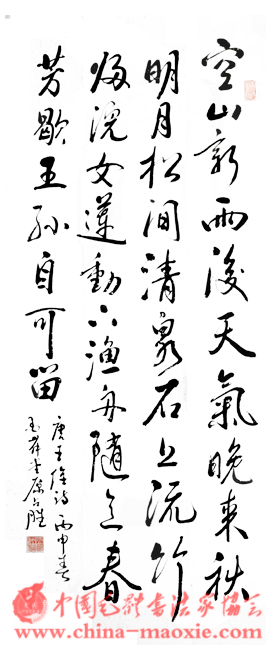 空山新雨後天氣晚来秋
明月松間清泉石上流竹
歸浣女蓮動下漁舟隨意春
芳歇王孫自可留
唐王維詩 丙申春
中国毛體書法家協会
www.china-maoxie.com